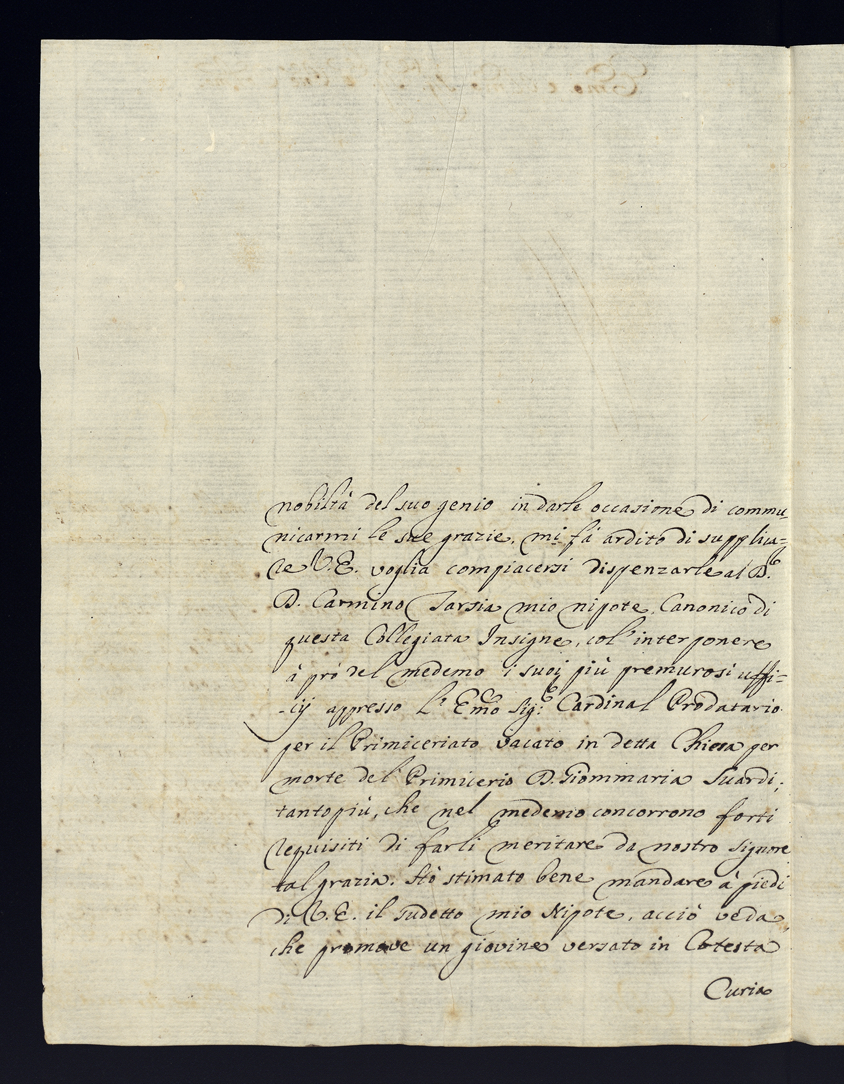 nobiltà del suo genio in darle occasione di commu-
nicarmi le sue grazie, mi fà ardito di supplica-
re V.E. voglia compiacersi dispenzarle al D.
D. Carmino Tarsia mio nipote, Canonico di
questa Collegiata Insigne, col'interponere
à prò del medemo i suoi più premurosi uffi-
-cij appresso l'Emo Sig.e Cardinal Prodatario
per il Primiceriato vacato in detta Chiesa per
morte del Primicerio D. Giommaria Suardi;
tanto più, che nel medemo concorrono forti
requisiti di farli meritare da nostro Signore
tal grazia. Hò stimato bene mandare à piedi
di V.E. il sudetto mio Nipote, acciò veda
che promove un giovine versato in Cotesta
Curia